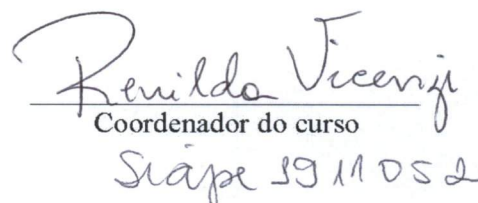 Renilda Vicenzi
Coordenador do curso
Siape 1911052